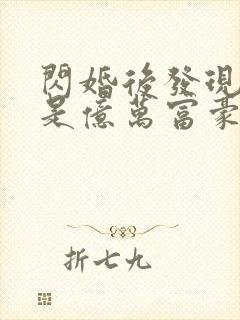 閃婚後發現
是億萬富豪
折七九